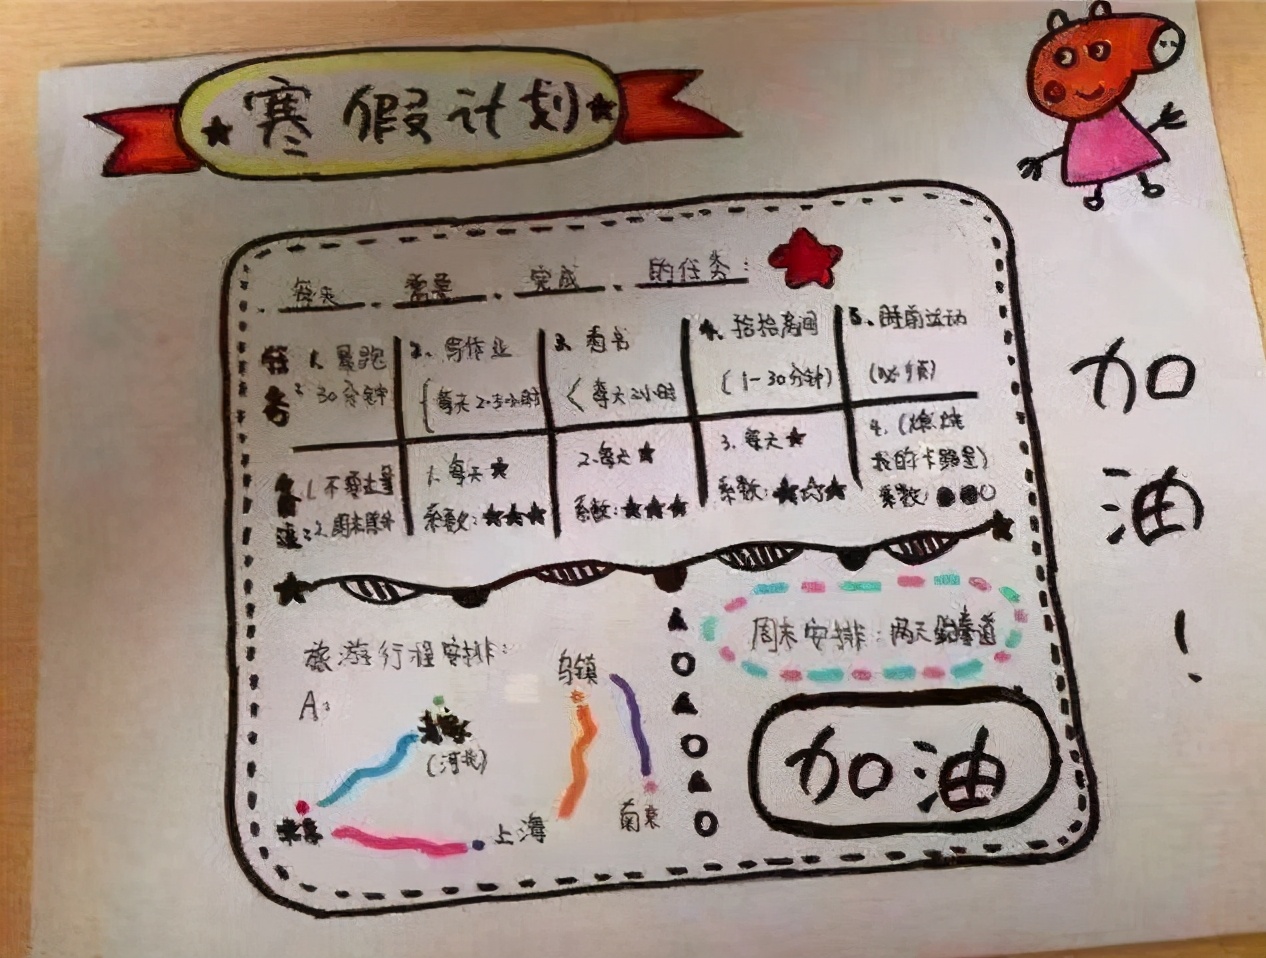 寒假计划
每天 需要 完成 的任务:
任务: 1. 晨跑 30分钟
2. 写作业 (每天2-3小时
3. 看书 (每天2小时
4. 抬抬高阔 (1-30分钟)
5. 睡前运动 (必须)
1. 不要过量
2. 周末除外
1. 每天★ 系数:★★★
2. 每天★ 系数:★★★
3. 每天★ 系数:★☆★
4. (燃烧我的卡路里) 系数:●●○
旅游行程安排:
A:
乌镇
(河北)
上海
南京
周末安排: 两天跆拳道
加油
加油!